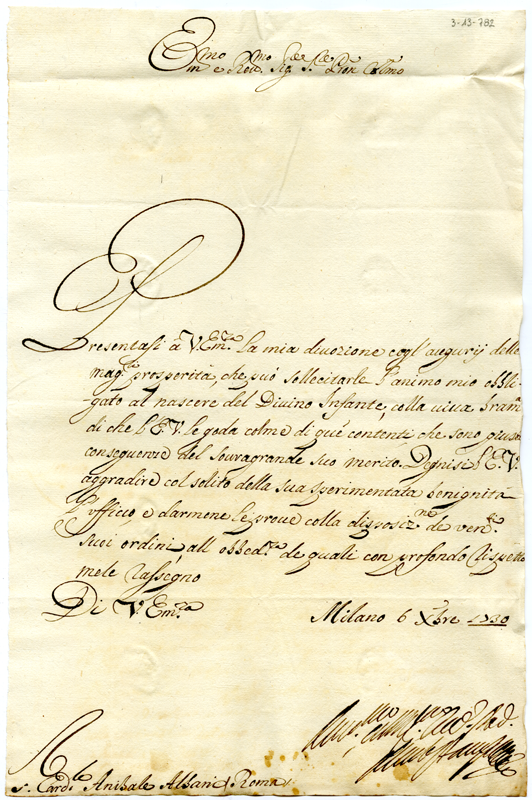 3-13-782
Em.mo e Rev.mo Sig.r Sig.r P̃ron Col.mo
Presentasi à V. Em.za la mia divozione cogl'augurij delle
mag.ri prosperità, che può sollecitarle l'animo mio obbli-
gato al nascere del Divino Infante, colla viva bram.
di che l'E.V. le goda colme di que' contenti che sono giuste
conseguenze del sovragrande suo merito. Degnisi l'E.V.
aggradire col solito della sua sperimentata benignità
l'ufficio e darmene le prove colla disposiz.ne de ven.ti
suoi ordini, all'obbed.za de quali con profondo rispetto
mele rassegno
Di V. Em.za Milano 6 Xbre 1730
S.r Card.le Anibale Albani Roma